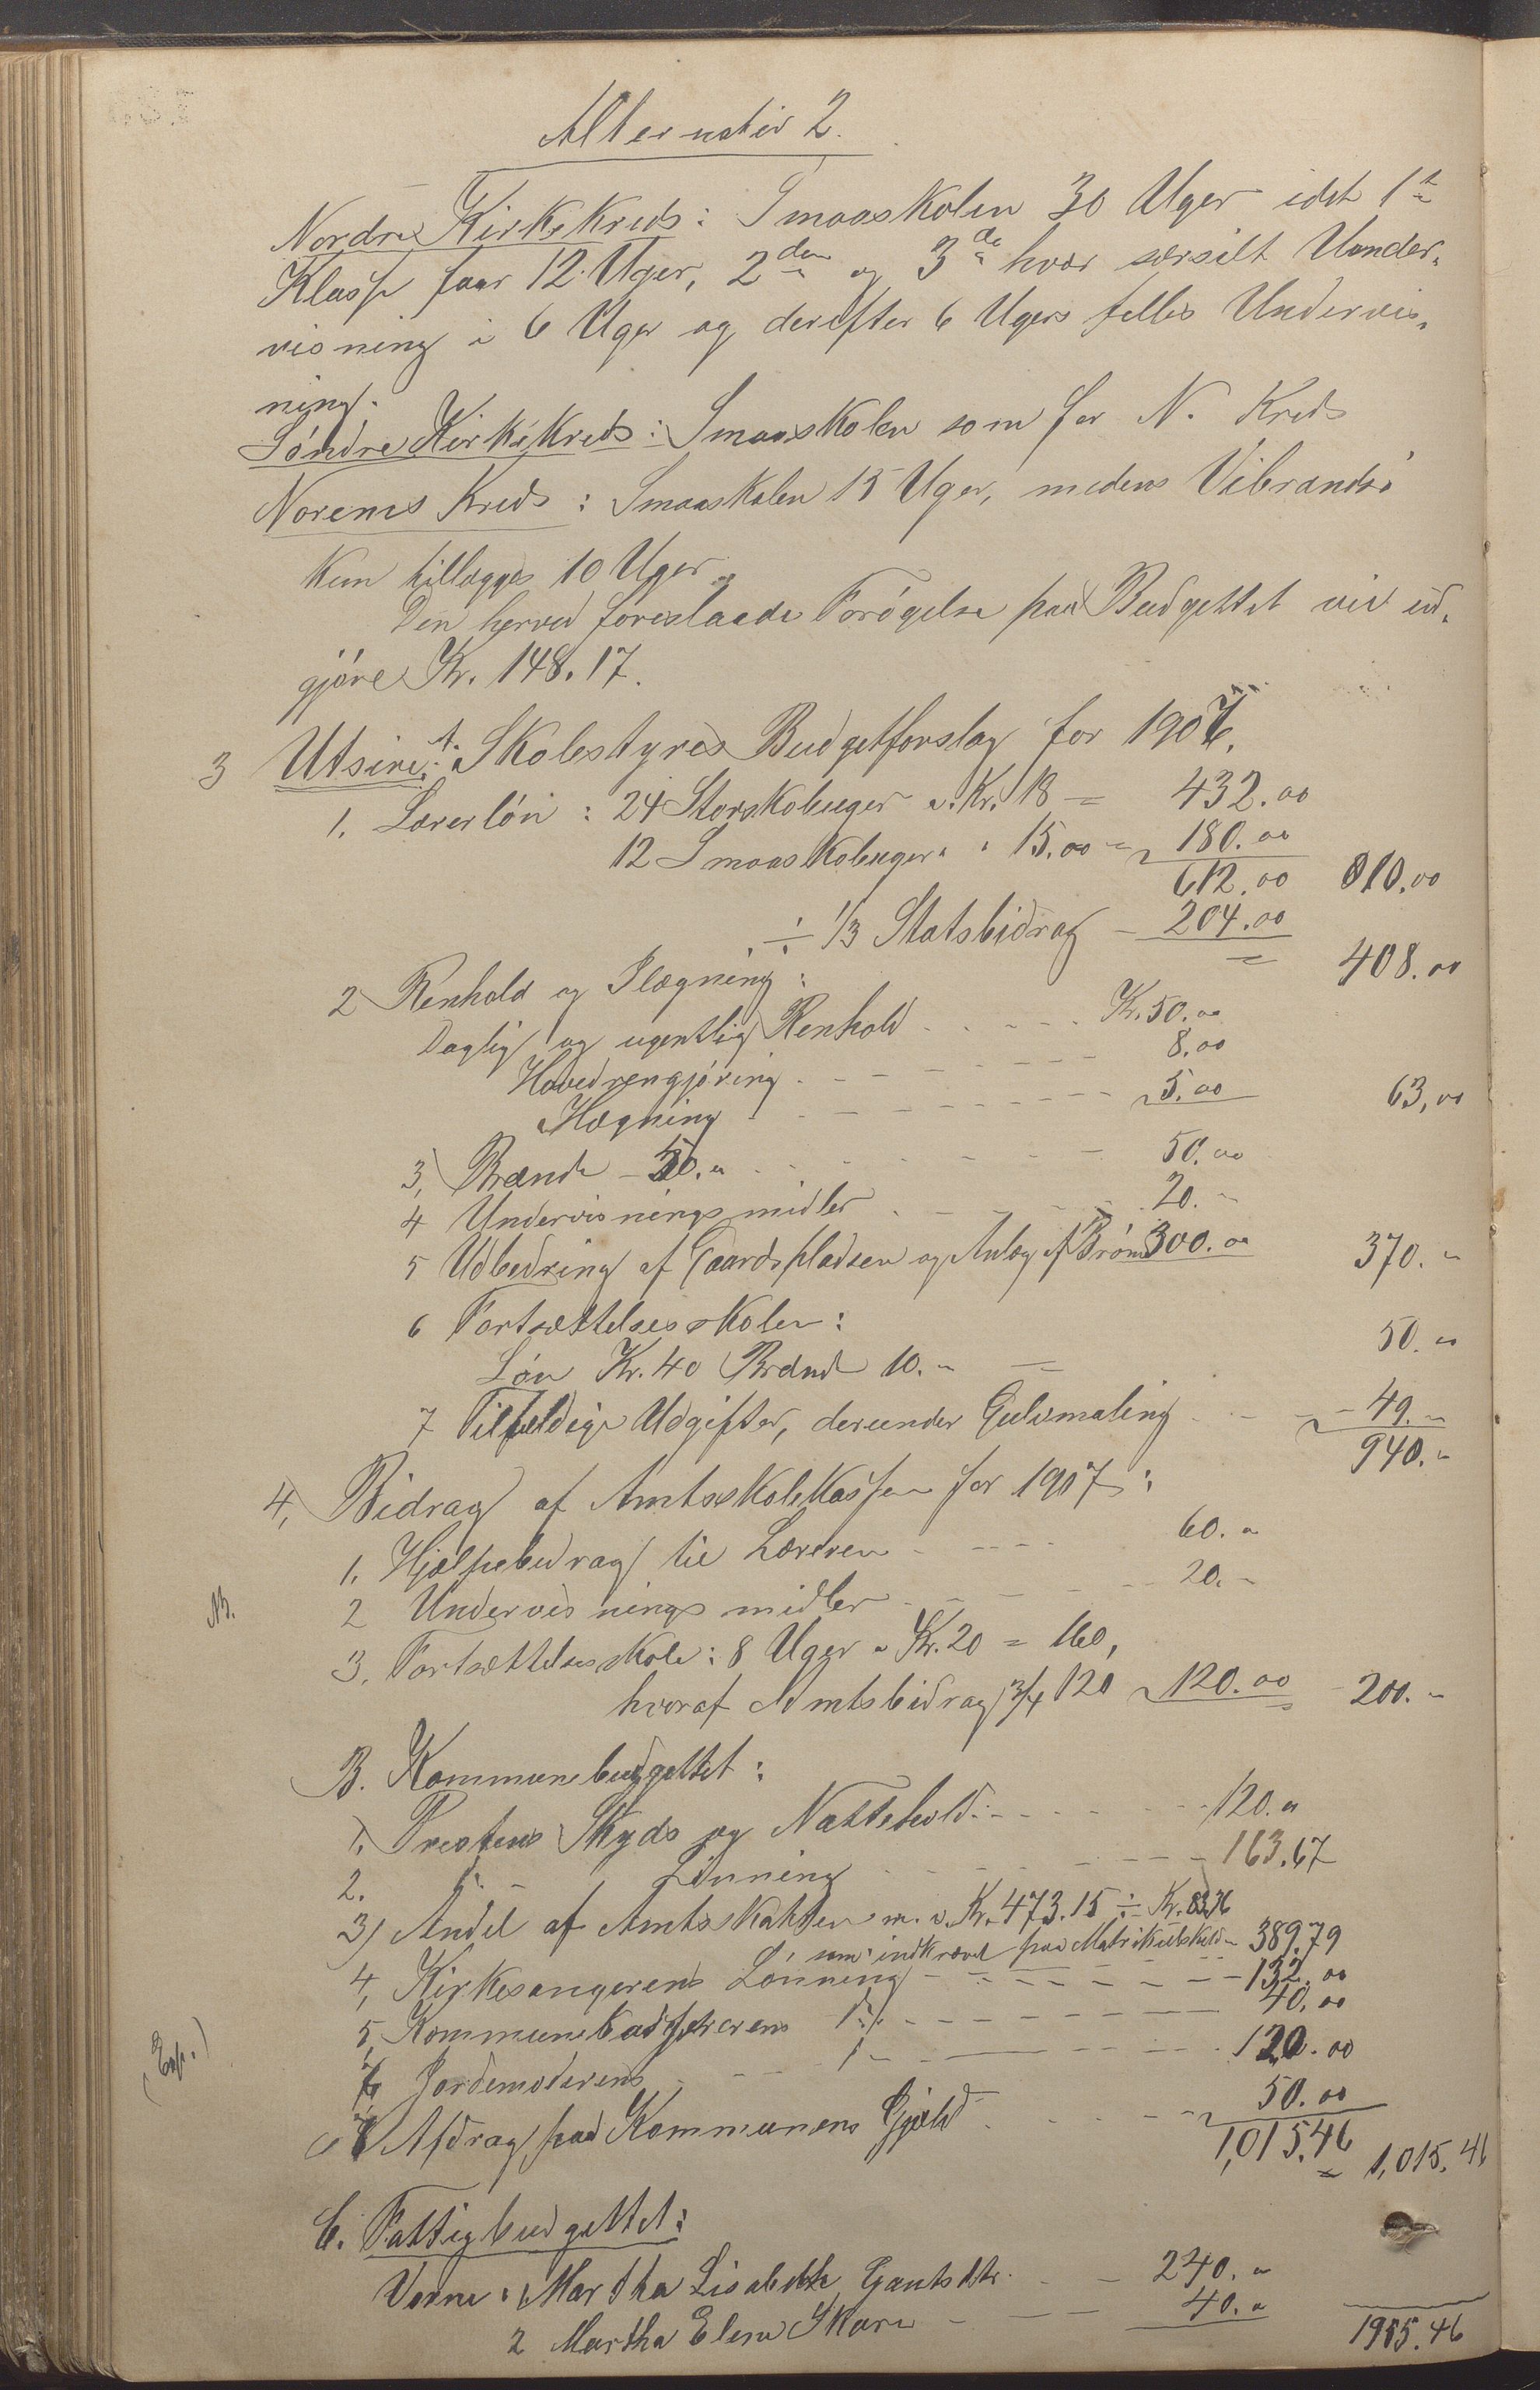 Alternativ 2.
Nordre Kirkekreds: Smaaskolen 30 Uger idet 1ste
Klasse faar 12 Uger, 2den og 3de hver særsilt Under-
visning i 6 Uger og derefter 6 Ugers felles Undervis-
ning.
Söndre Kirkekreds: Smaaskolen som for N. Kreds
Norems Kreds: Smaaskolen 15 Uger, medens Vibrandsö
kun tillægges 10 Uger.
Den herved foreslaaede Forögelse paa Budgettet vil ud-
gjöre Kr. 148.17.
3 Utsire: A. Skolestyres Budgetforslag for 1907.
1. Lærerlön: 24 Storskoleuger a Kr. 18 = 432.00
12 Smaaskoleuger " " 15.00 = 180.00
612.00 810.00
÷ 1/3 Statsbidrag - 204.00
= 408.00
2 Renhold og Ilægning:
Daglig og ugentlig Renhold Kr. 50.00
Hovedrengjöring 8.00
Ilægning 5.00 63,00
3, Brænde - 50.00 50.00
4 Undervisningsmidler 20.-
5 Udbedring af Gaardspladsen og Anlæg af Brönd 300.00 370.-
6 Fortsættelsesskolen:
Lön Kr. 40 Brænde 10.- = 50.00
7 Tilfeldige Udgifter, derunder Gulvmaling - 49.-
940.-
4, Bidrag af Amtsskolekassen for 1907:
1. Hjælpebidrag til Læreren 60.-
NB. 2 Undervisningsmidler 20.-
3. Fortsættelsesskole: 8 Uger a Kr. 20 = 160,
hvoraf Amtsbidrag 3/4 120 120.00 = 200.-
B. Kommunebudgettet:
1, Prestens Skyds og Nattehold 120.00
2. " - Lönning 163.67
3) Andel af Amtsskatten m. v. Kr. 473.15 ÷ Kr. 83.36
som indkræves paa Matrikulskyld - 389.79
4, Kirkesangerens Lönning 132.00
5, Kommunekassererens " 40.00
(Exp.) 6 Jordemoderens " 120.00
7 Afdrag paa Kommunens Gjæld 50.00
1,015.46 = 1,015.46
C. Fattigbudgettet:
Varne: 1, Martha Lisabeth Gautsdtr. 240.-
2 Martha Elene Skare 40.- 1955.46